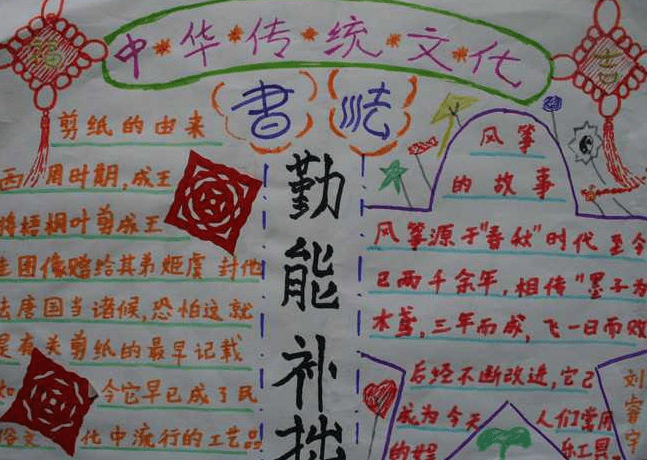 中华传统文化
福
吉
书法
剪纸的由来
西周时期,成王
将梧桐叶剪成王
圭图像赠给其弟姬虞 封他
去唐国当诸侯,恐怕这就
是有关剪纸的最早记载
如今它早已成了民
俗文化中流行的工艺品
勤能补拙
风筝
的故事
风筝源于"春秋"时代 至今
已两千余年,相传"墨子为
木鸢,三年而成,飞一日而败
后经不断改进,它已
成为今天人们常用
的娱乐工具。
刘睿宇